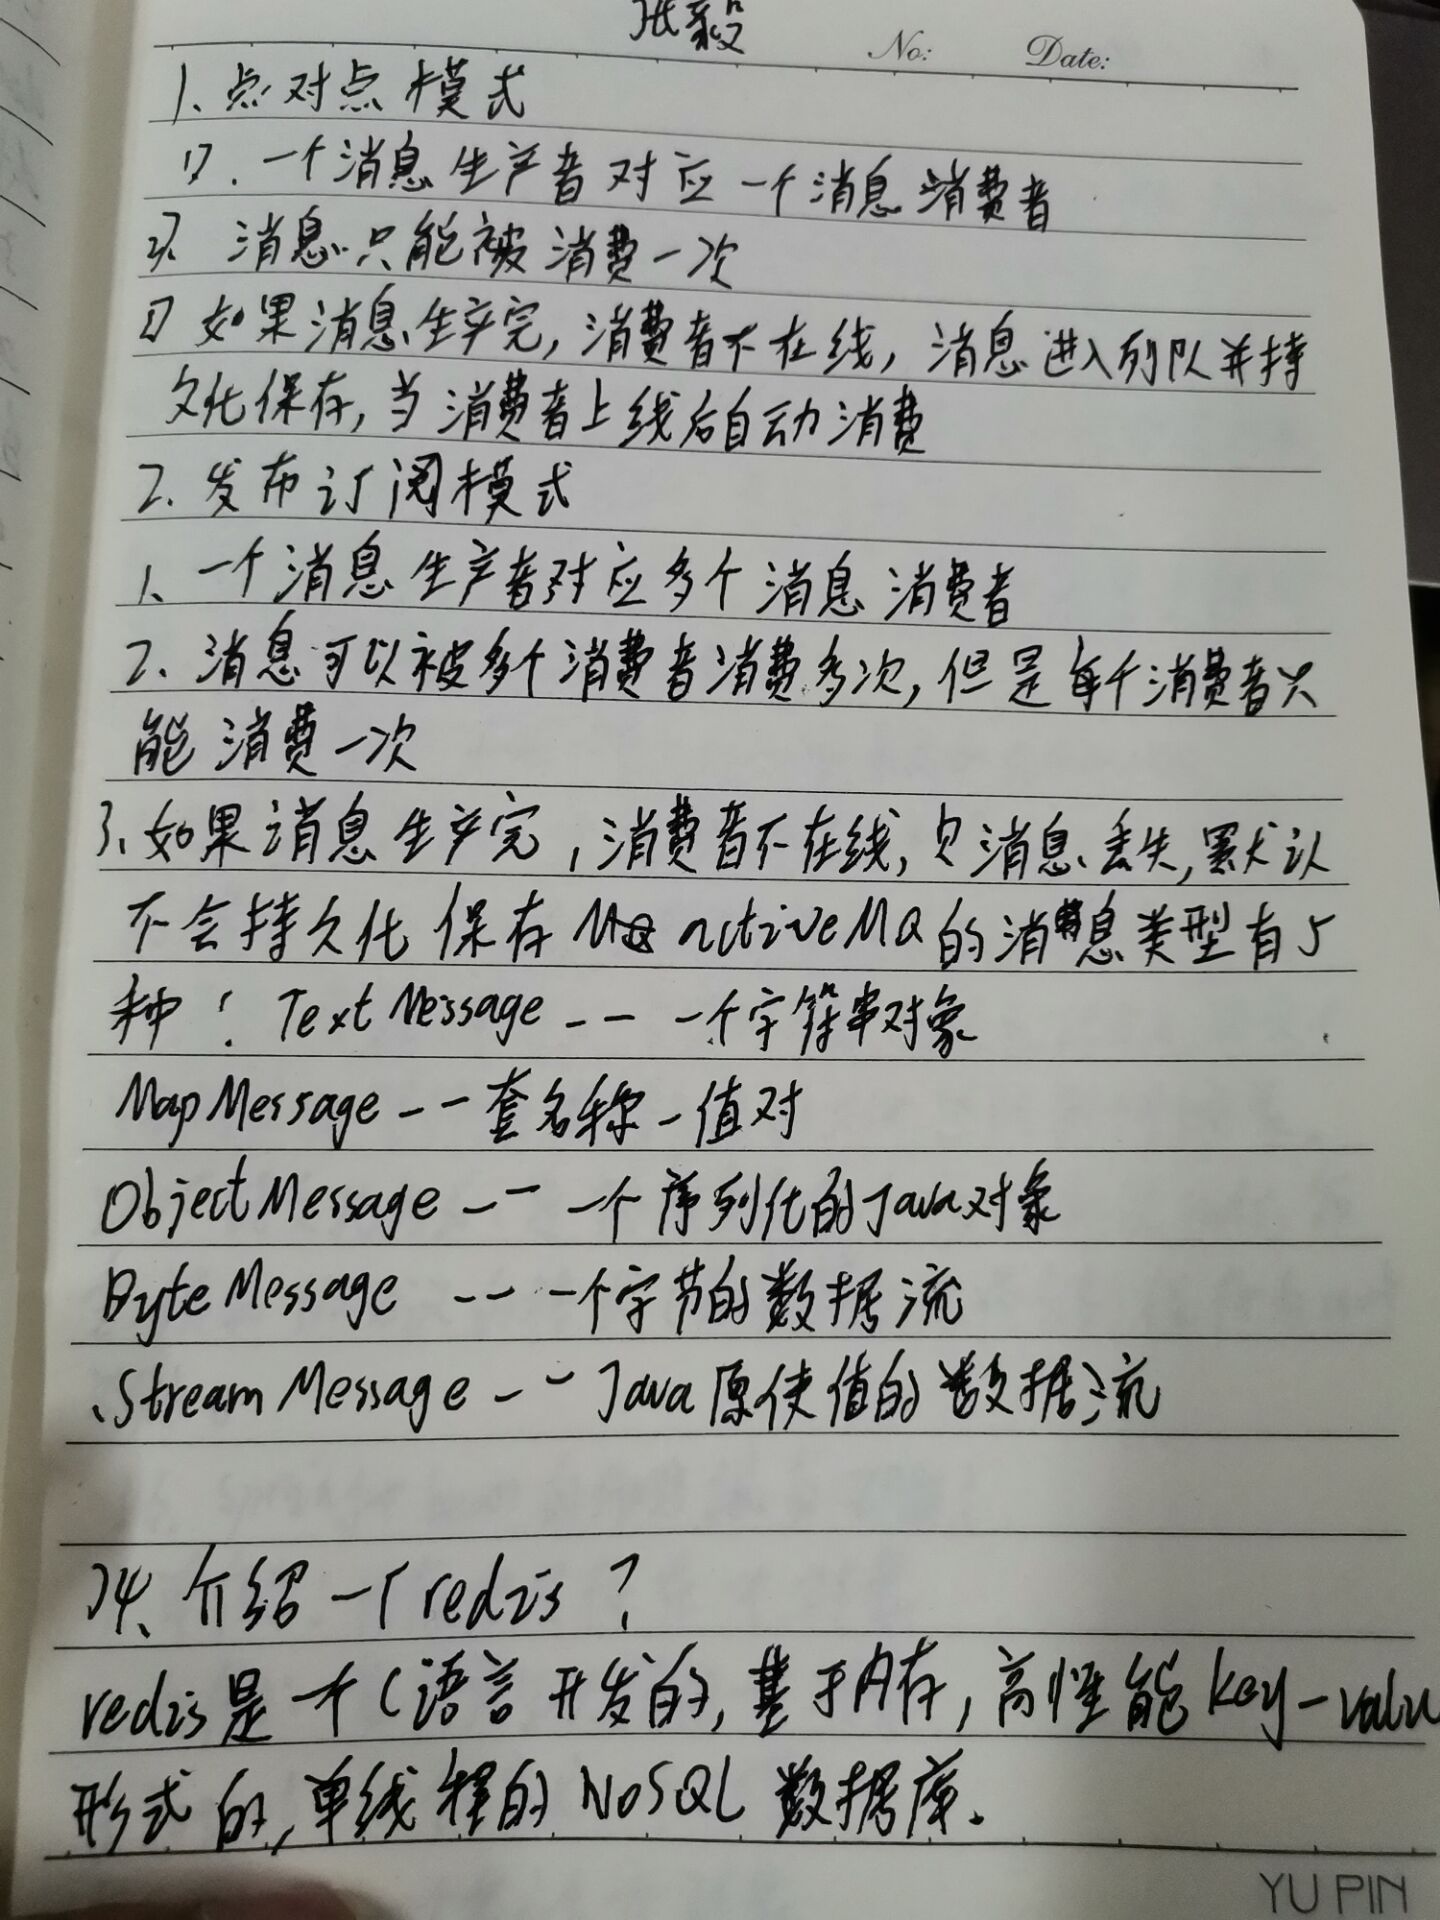 张毅
No: Date:
1、点对点模式
1). 一个消息生产者对应一个消息消费者
2). 消息只能被消费一次
3) 如果消息生产完,消费者不在线,消息进入列队并持
久化保存,当消费者上线后自动消费
2、发布订阅模式
1、一个消息生产者对应多个消息消费者
2、消息可以被多个消费者消费多次,但是每个消费者只
能消费一次
3、如果消息生产完,消费者不在线,消息丢失,默认
不会持久化保存 activeMQ的消息类型有5
种: TextMessage -- 一个字符串对象
MapMessage -- 套名称-值对
ObjectMessage -- 一个序列化的Java对象
ByteMessage -- 一个字节的数据流
StreamMessage -- Java原使值的数据流
74、介绍一下redis?
redis是一个C语言开发的,基于内存,高性能key-valu
形式的,单线程的NoSQL数据库.
YU PIN